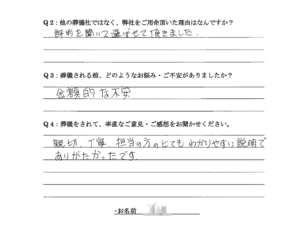 Q2：他の葬儀社ではなく、弊社をご用命頂いた理由はなんですか？
評判を聞いて選ばせて頂きました。
Q3：葬儀される前、どのようなお悩み・ご不安がありましたか？
金額的な不安
Q4：葬儀をされて、率直なご意見・ご感想をお聞かせください。
親切、丁寧、担当の方のとてもわかりやすい説明で
ありがたかったです。
・お名前